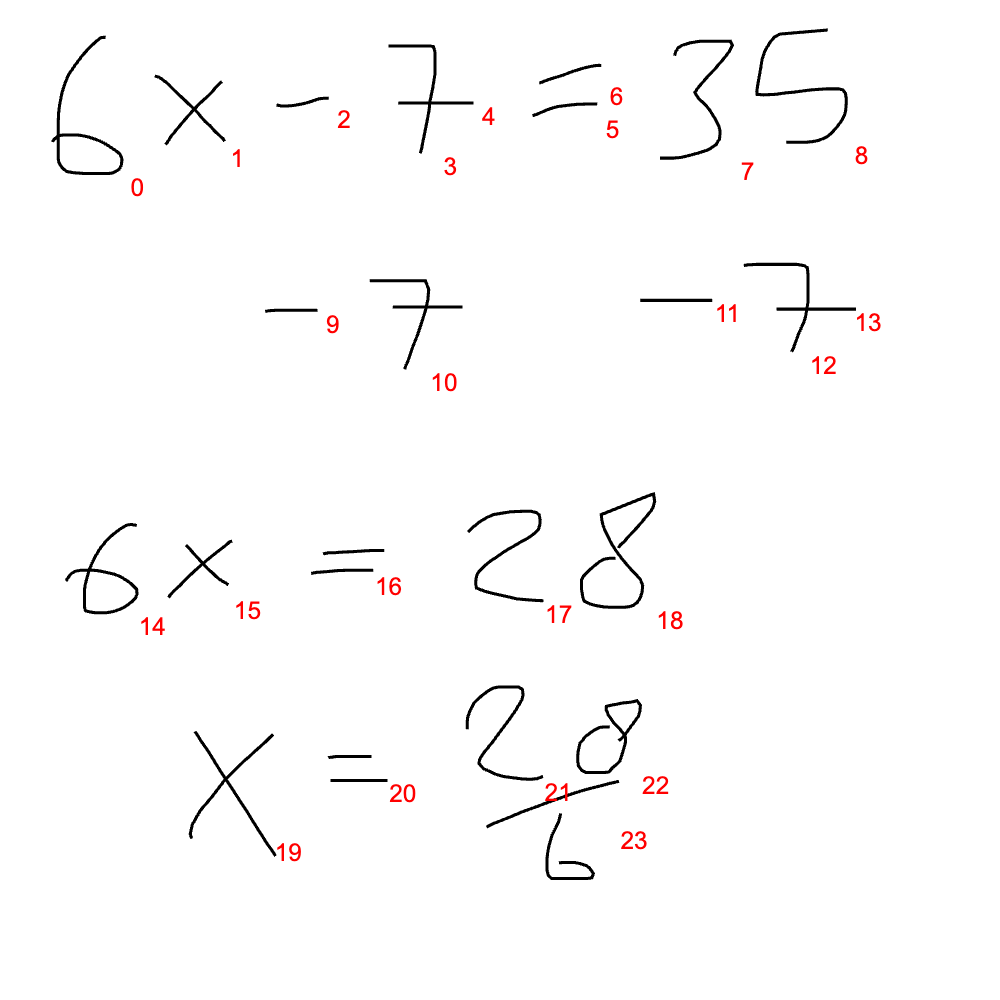 6x - 7 = 35
0 1 2 3 4 5 6 7 8
- 7 - 7
9 10 11 12 13
6x = 28
14 15 16 17 18
x = 28/6
19 20 21 22 23